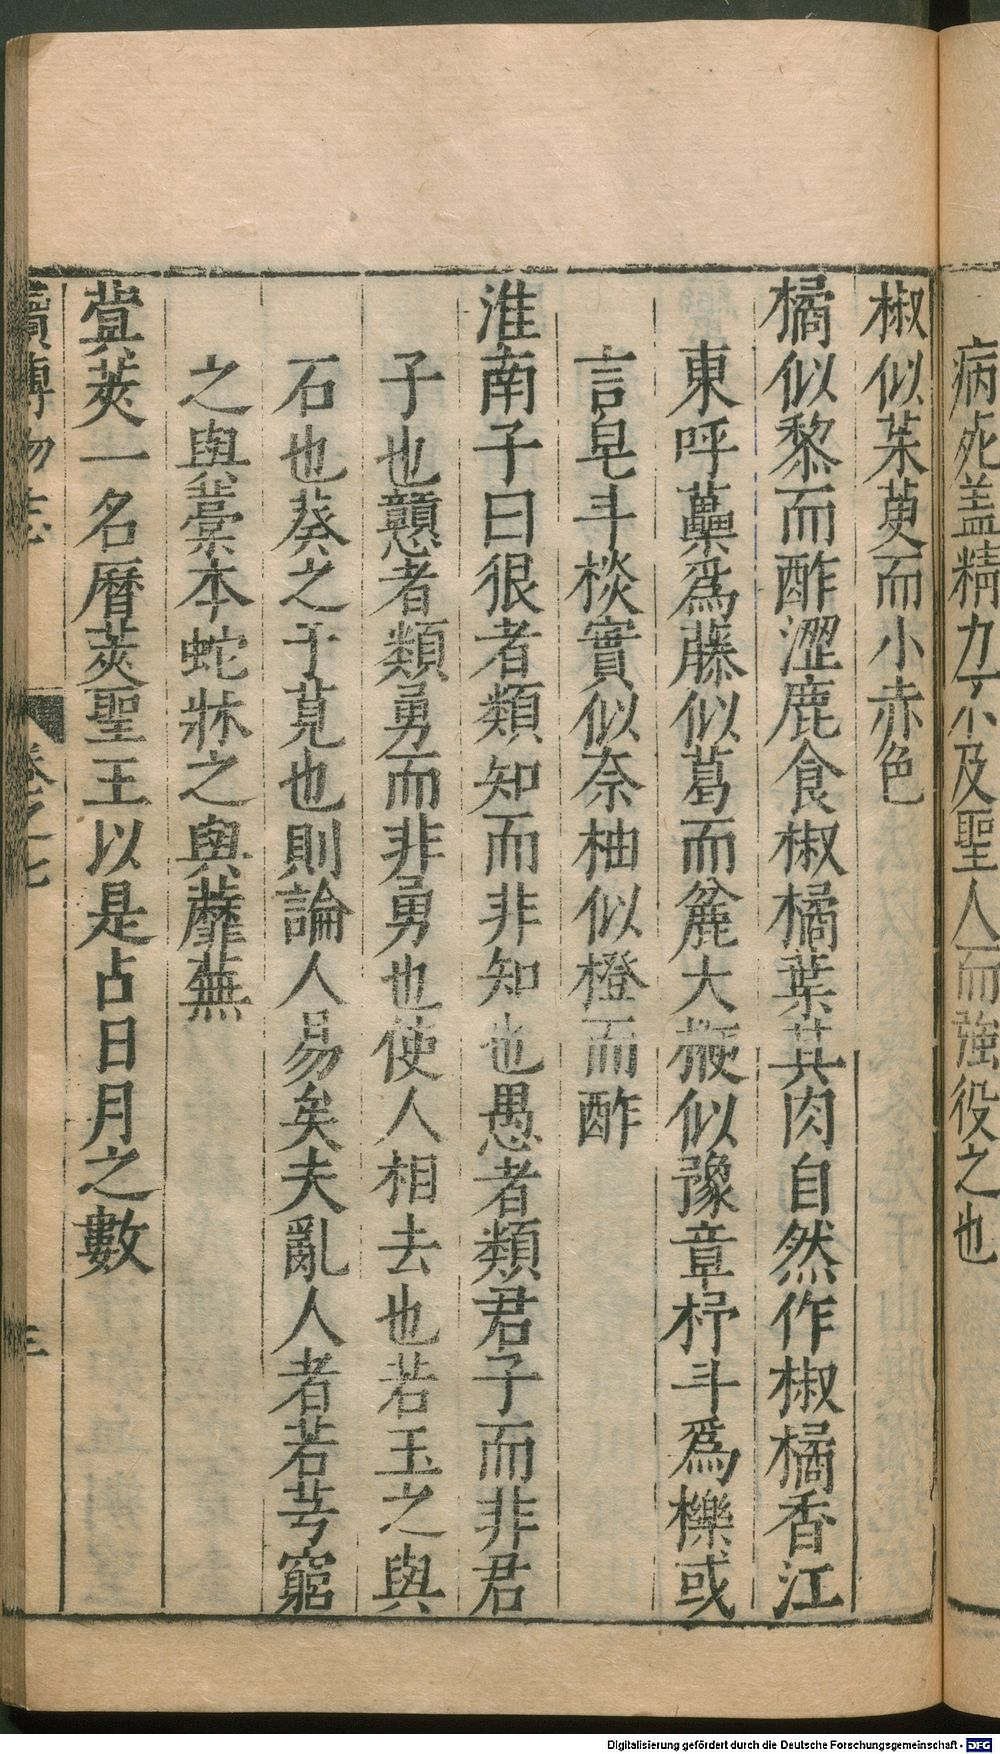 病死盖精力不及聖人而強役之也
椒似茱萸而小赤色
橘似黎而酢澀鹿食椒橘葉其肉自然作椒橘香江
東呼虆爲藤似葛而麄大櫠似豫章杼斗爲櫟或
言皂斗棪實似奈柚似橙而酢
淮南子曰很者類知而非知也愚者類君子而非君
子也戇者類勇而非勇也使人相去也若玉之與
石也葵之于莧也則論人易矣夫亂人者若芎窮
之與藁本蛇牀之與蘼蕪
蓂莢一名曆莢聖王以是占日月之數
續博物志 卷之七 三
Digitalisierung gefördert durch die Deutsche Forschungsgemeinschaft - DFG